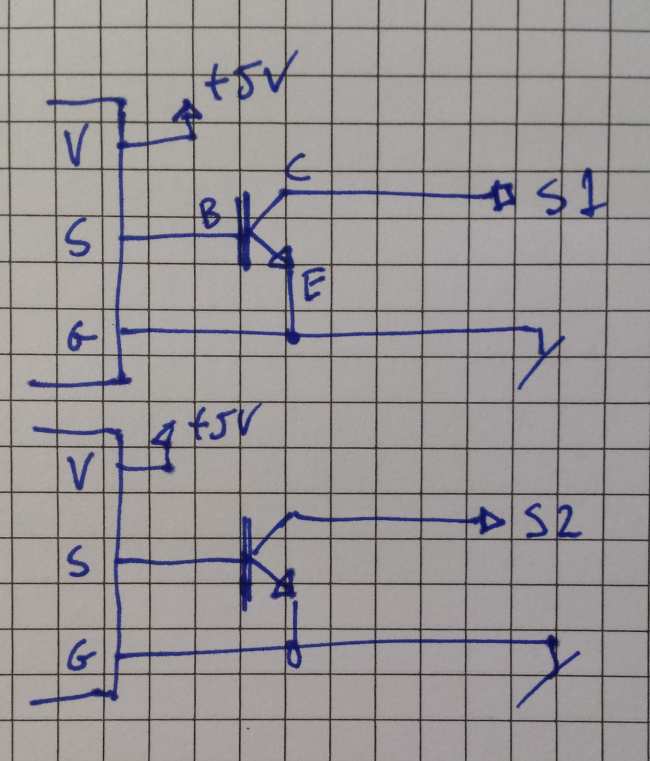 +5V
V
C
S1
B
S
E
G
+5V
V
S2
S
G